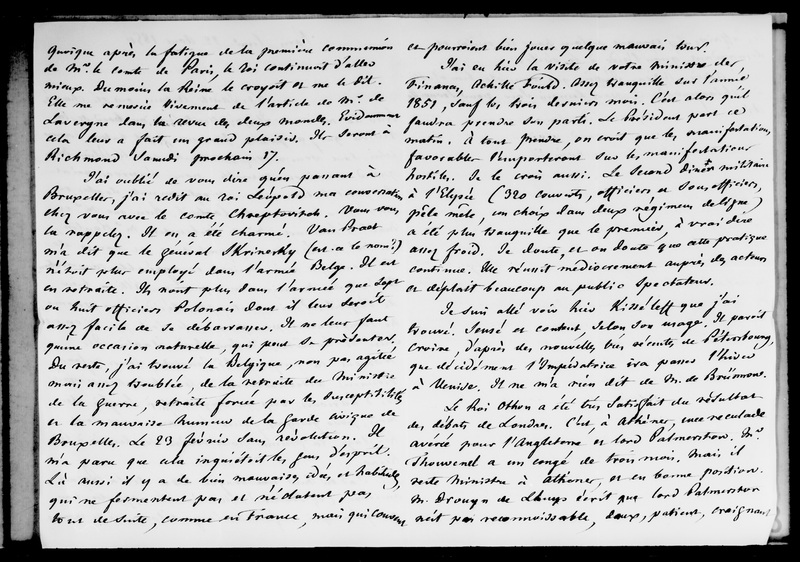 Quoique après la fatigue de la première communion
de Mr. le comte de Paris, le Roi continuoit d'aller
mieux. Du moins la Reine le croyoit et me le dit.
Elle me remercie vivement de l'article de Mr. de
Lavergne dans la revue des deux mondes. Evidemment
cela leur a fait un grand plaisir. Ils seront à
Richmond Samedi prochain 17.
J'ai oublié de vous dire qu'en passant à
Bruxelles, j'ai redit au roi Léopold ma conversation
chez vous avec le comte Chreptovitch. Vous vous
la rappelez. Il en a été charmé. Van Praet
m'a dit que le général Skrinecky (est-ce le nom ?)
n'étoit plus employé dans l'armée Belge. Il est
en retraite. Ils n'ont plus dans l'armée que sept
ou huit officiers Polonais dont il leur seroit
assez facile de se débarrasser. Il ne leur faut
qu'une occasion naturelle, qui peut se présenter.
Du reste, j'ai trouvé la Belgique, non pas agitée
mais assez troublée, de la retraite du Ministre
de la guerre, retraite forcée par les susceptibilités
et la mauvaise humeur de la garde civique de
Bruxelles. Le 23 février sans révolution. Il
m'a paru que cela inquiétoit les gens d'esprit.
Là aussi il y a de bien mauvaises idées et habitudes,
qui ne fermentent pas et n'éclatent pas
tout de suite, comme en France, mais qui couvent
et pourroient bien jouer quelque mauvais tour.
J'ai eu hier la visite de votre Ministre des
Finances, Achille Fould. Assez tranquille sur l'année
1851, sauf les trois derniers mois. C'est alors qu'il
faudra prendre son parti. Le Président part ce
matin. à tout prendre, on croit que les manifestations
favorables l'emporteront sur les manifestations
hostiles. Je le crois aussi. Le second diner militaire
à l'Elysée (320 couverts, officiers et sous officiers,
pêle mêle, un choix dans deux régimens de ligne)
a été plus tranquille que le premier, à vrai dire
assez froid. Je doute, et on doute que cette pratique
continue. Elle réussit médiocrement auprès des acteurs
et déplait beaucoup au public spectateur.
Je suis allé voir hier Kisséleff que j'ai
trouvé. Sensé et content, selon son usage. Il paroît
croire, d'après des nouvelles très récentes de Pétersbourg,
que décidément l'Impératrice ira passer l'hiver
à Venise. Il ne m'a rien dit de M. de Brünnow.
Le Roi Othon a été très satisfait du résultat
des débats de Londres. C'est, à Athènes, une reculade
avérée pour l'Angleterre et lord Palmerston. Mr.
Thouvenel a un congé de trois mois. Mais il
reste Ministre à Athènes, et en bonne position.
M. Drouyn de Lhuys écrit que lord Palmerston
n'est pas reconnoissable, doux, patient, craignant